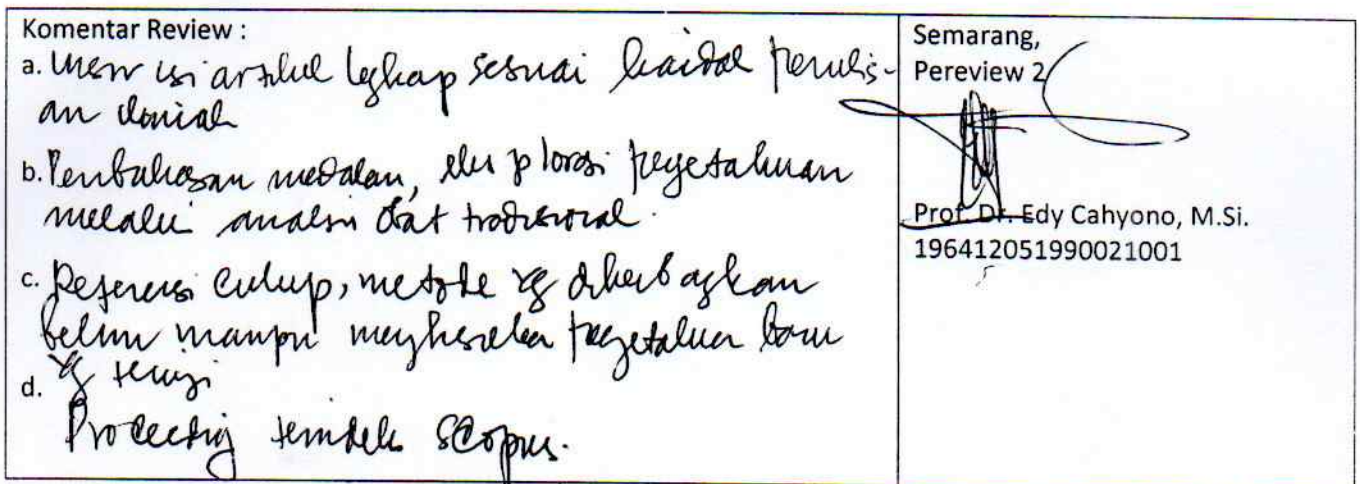 Komentar Review :
a. Unsur isi artikel lengkap sesuai kaidah penulis-
an ilmiah
b. Pembahasan mendalam, eksplorasi pengetahuan
melalui analisis obat tradisional.
c. Referensi cukup, metode yg dikembangkan
belum mampu menghasilkan pengetahuan baru
yg
d.
Proceeding terindeks Scopus.
Semarang,
Pereview 2
Prof. Dr. Edy Cahyono, M.Si.
196412051990021001